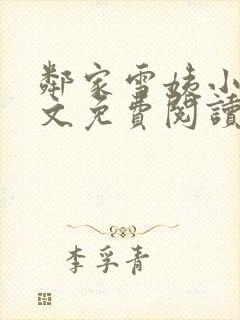 鄰家雪姨小
文免費閱讀
李孚青